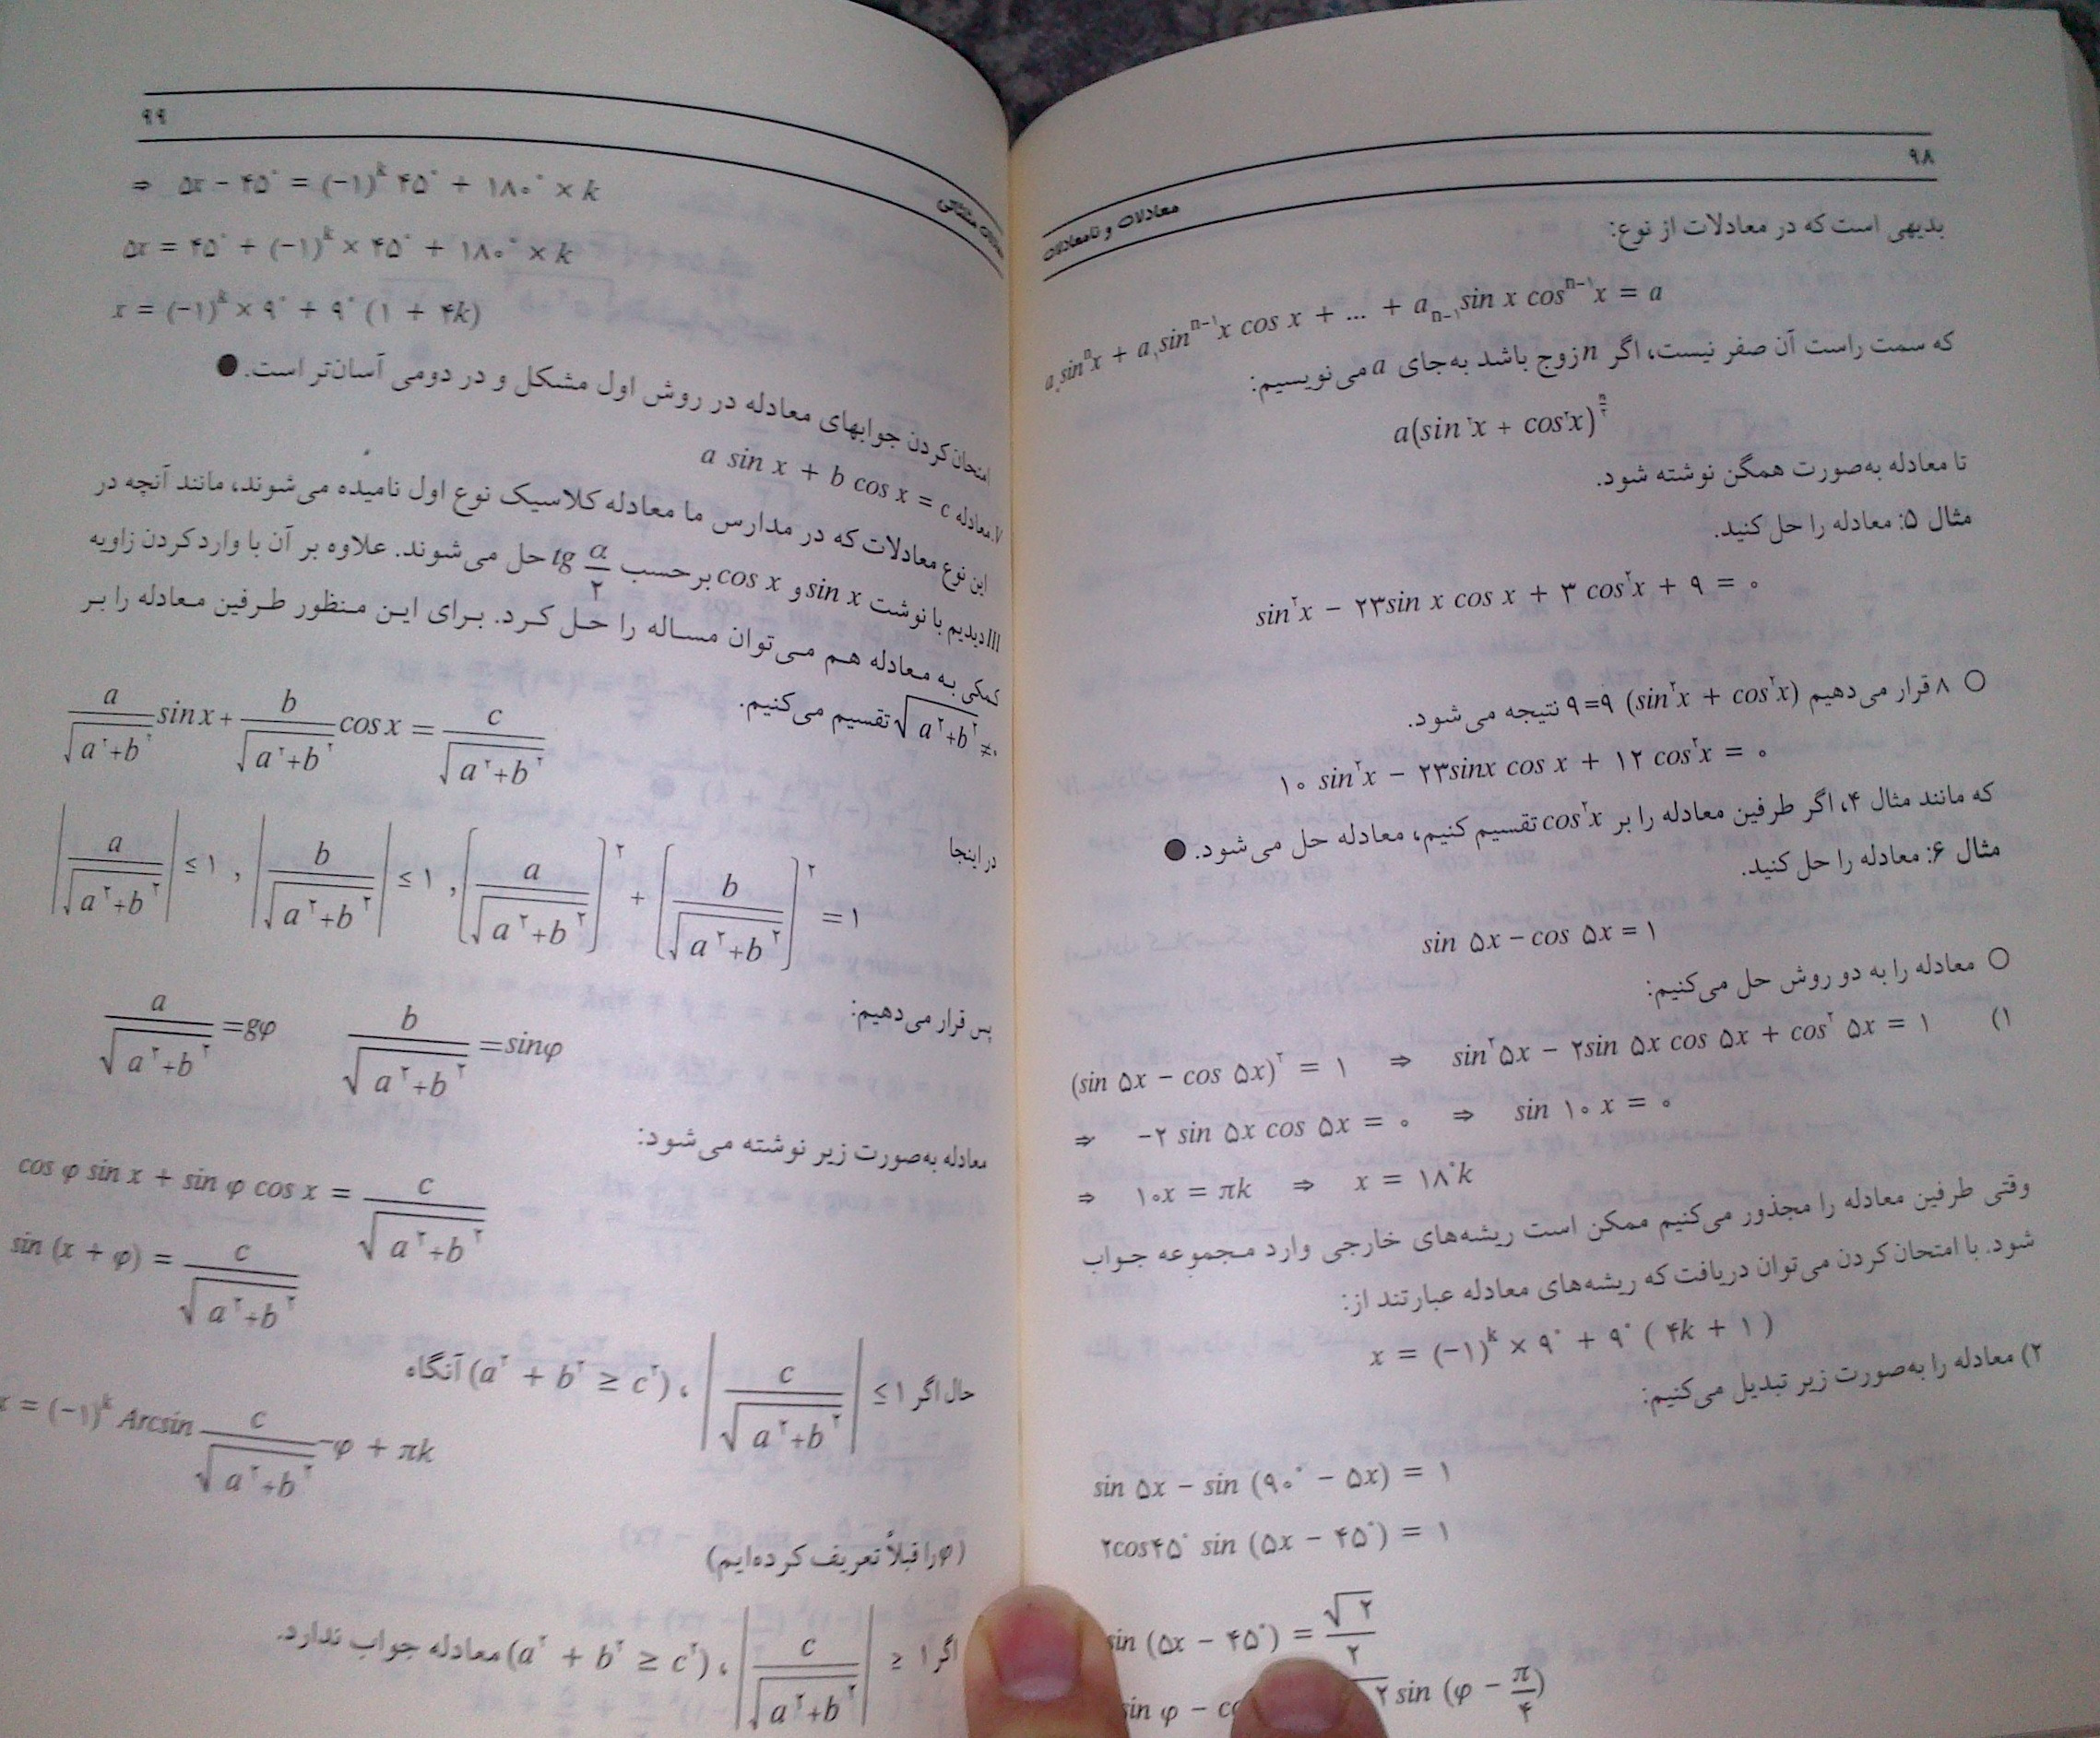 ۹۸
معادلات و نامعادلات
بدیهی است که در معادلات از نوع:
a.sinⁿx + a₁sinⁿ⁻¹x cos x + ... + aₙ₋₁sin x cosⁿ⁻¹x = a
که سمت راست آن صفر نیست، اگر n زوج باشد به‌جای a می‌نویسیم:
a(sin²x + cos²x)^(n/۲)
تا معادله به‌صورت همگن نوشته شود.
مثال ۵: معادله را حل کنید.
sin²x − ۲۳sin x cos x + ۳ cos²x + ۹ = ۰
○ ۸ قرار می‌دهیم (sin²x + cos²x) ۹=۹ نتیجه می‌شود.
۱۰ sin²x − ۲۳sinx cos x + ۱۲ cos²x = ۰
که مانند مثال ۴، اگر طرفین معادله را بر cos²x تقسیم کنیم، معادله حل می‌شود. ●
مثال ۶: معادله را حل کنید.
sin ۵x − cos ۵x = ۱
○ معادله را به دو روش حل می‌کنیم:
۱) (sin ۵x − cos ۵x)² = ۱ ⇒ sin²۵x − ۲sin ۵x cos ۵x + cos² ۵x = ۱
⇒ −۲ sin ۵x cos ۵x = ۰ ⇒ sin ۱۰ x = ۰
⇒ ۱۰x = πk ⇒ x = ۱۸°k
وقتی طرفین معادله را مجذور می‌کنیم ممکن است ریشه‌های خارجی وارد مجموعه جواب
شود. با امتحان کردن می‌توان دریافت که ریشه‌های معادله عبارتند از:
x = (−۱)ᵏ × ۹° + ۹° ( ۴k + ۱ )
۲) معادله را به‌صورت زیر تبدیل می‌کنیم:
sin ۵x − sin (۹۰° − ۵x) = ۱
۲cos۴۵° sin (۵x − ۴۵°) = ۱
sin (۵x − ۴۵°) = √۲/۲
sin φ −
sin (φ − π/۴)
۹۹
⇒ ۵x − ۴۵° = (−۱)ᵏ ۴۵° + ۱۸۰° × k
۵x = ۴۵° + (−۱)ᵏ × ۴۵° + ۱۸۰° × k
x = (−۱)ᵏ × ۹° + ۹° (۱ + ۴k)
امتحان کردن جوابهای معادله در روش اول مشکل و در دومی آسان‌تر است. ●
V. معادله a sin x + b cos x = c
این نوع معادلات که در مدارس ما معادله کلاسیک نوع اول نامیده می‌شوند، مانند آنچه در
III دیدیم با نوشت sin x و cos x بر حسب tg α/۲ حل می‌شوند. علاوه بر آن با وارد کردن زاویه
کمکی به معادله هم می‌توان مساله را حل کرد. برای این منظور طرفین معادله را بر
√(a²+b²) ≠۰ تقسیم می‌کنیم.
a/√(a²+b²) sin x + b/√(a²+b²) cos x = c/√(a²+b²)
در اینجا
|a/√(a²+b²)| ≤ ۱ , |b/√(a²+b²)| ≤ ۱ , [a/√(a²+b²)]² + [b/√(a²+b²)]² = ۱
پس قرار می‌دهیم:
a/√(a²+b²) =gφ b/√(a²+b²) =sinφ
معادله به‌صورت زیر نوشته می‌شود:
cos φ sin x + sin φ cos x = c/√(a²+b²)
sin (x + φ) = c/√(a²+b²)
حال اگر |c/√(a²+b²)| ≤ ۱ ، (a² + b² ≥ c²) آنگاه
x = (−۱)ᵏ Arcsin c/√(a²+b²) −φ + πk
(φ را قبلاً تعریف کرده‌ایم)
اگر ۱ ≤ |c/√(a²+b²)| ، (a² + b² ≥ c²) معادله جواب ندارد.